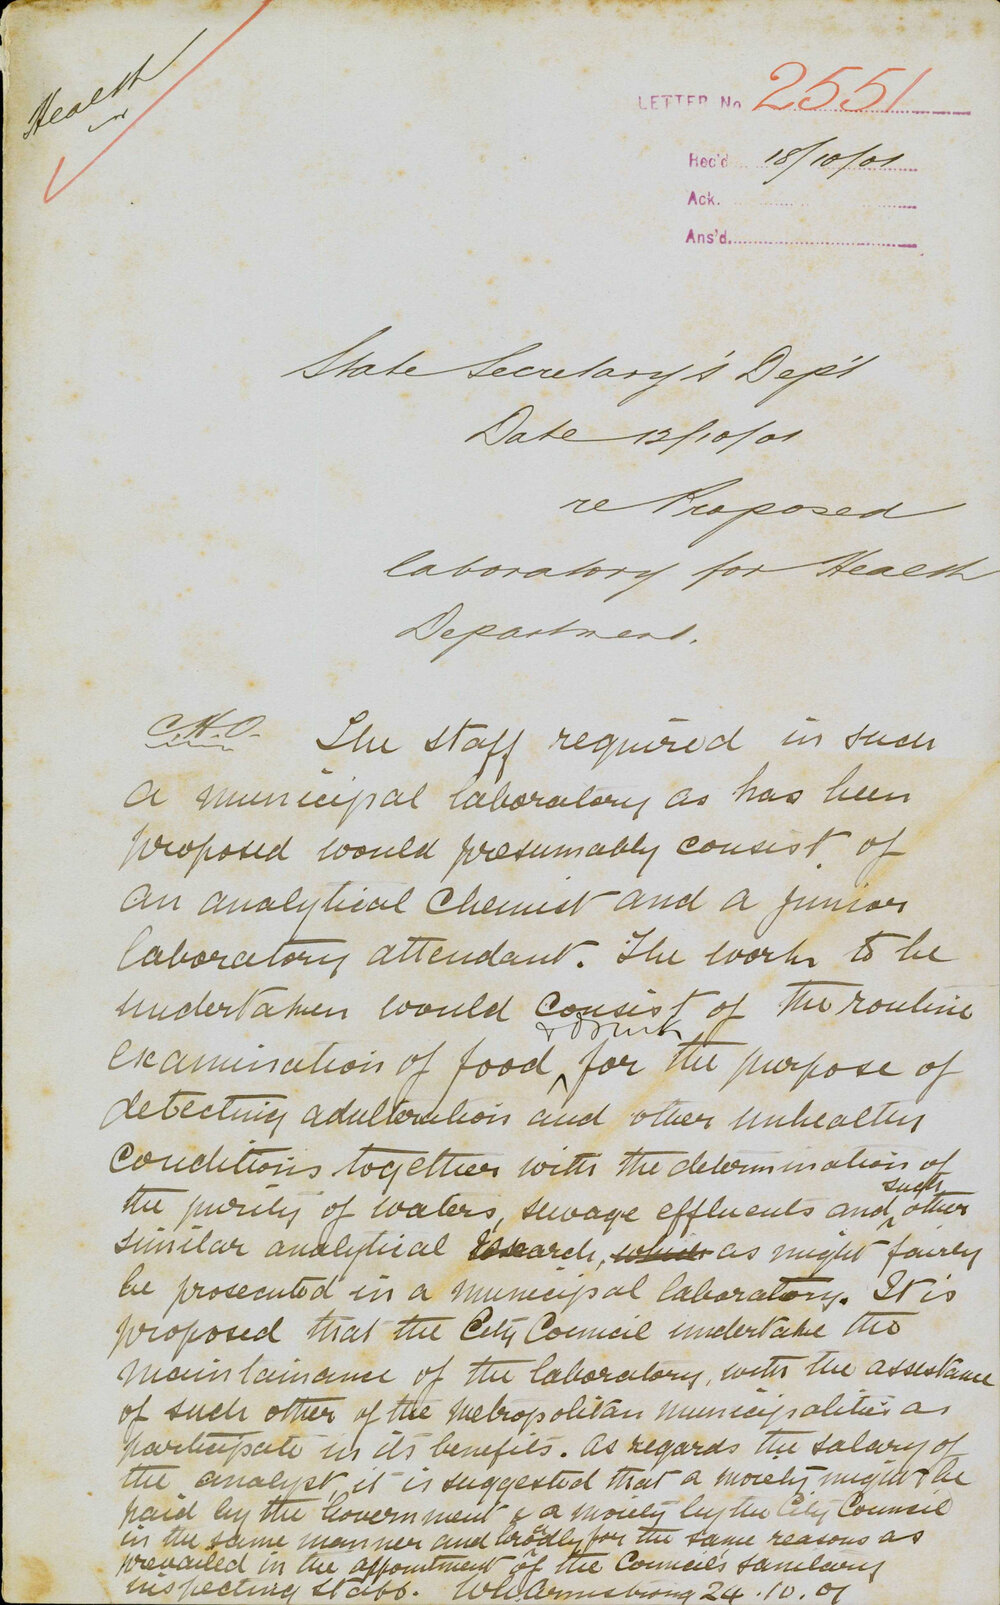 Health
LETTER No 2551
Rec'd 18/10/01
Ack.
Ans'd.
State Secretary's Dep't
Date 12/10/01
re Proposed
laboratory for Health
Department.
C.H.O. The staff required in such
a municipal laboratory as has been
proposed would presumably consist of
an analytical chemist and a junior
laboratory attendant. The work to be
undertaken would consist of the routine
& drink
examination of food for the purpose of
detecting adulteration and other unhealthy
conditions together with the determination of
such
the purity of waters, sewage effluents and other
similar analytical research, which as might fairly
be prosecuted in a municipal laboratory. It is
proposed that the City Council undertake the
maintainance of the laboratory, with the assistance
of such other of the metropolitan municipalities as
participate in its benefits. As regards the salary of
the analyst, it is suggested that a moiety might be
paid by the Government & a moiety by the City Council
in the same manner and broadly for the same reasons as
prevailed in the appointment of the Council's sanitary
inspecting staff. Wm Armstrong 24.10.01